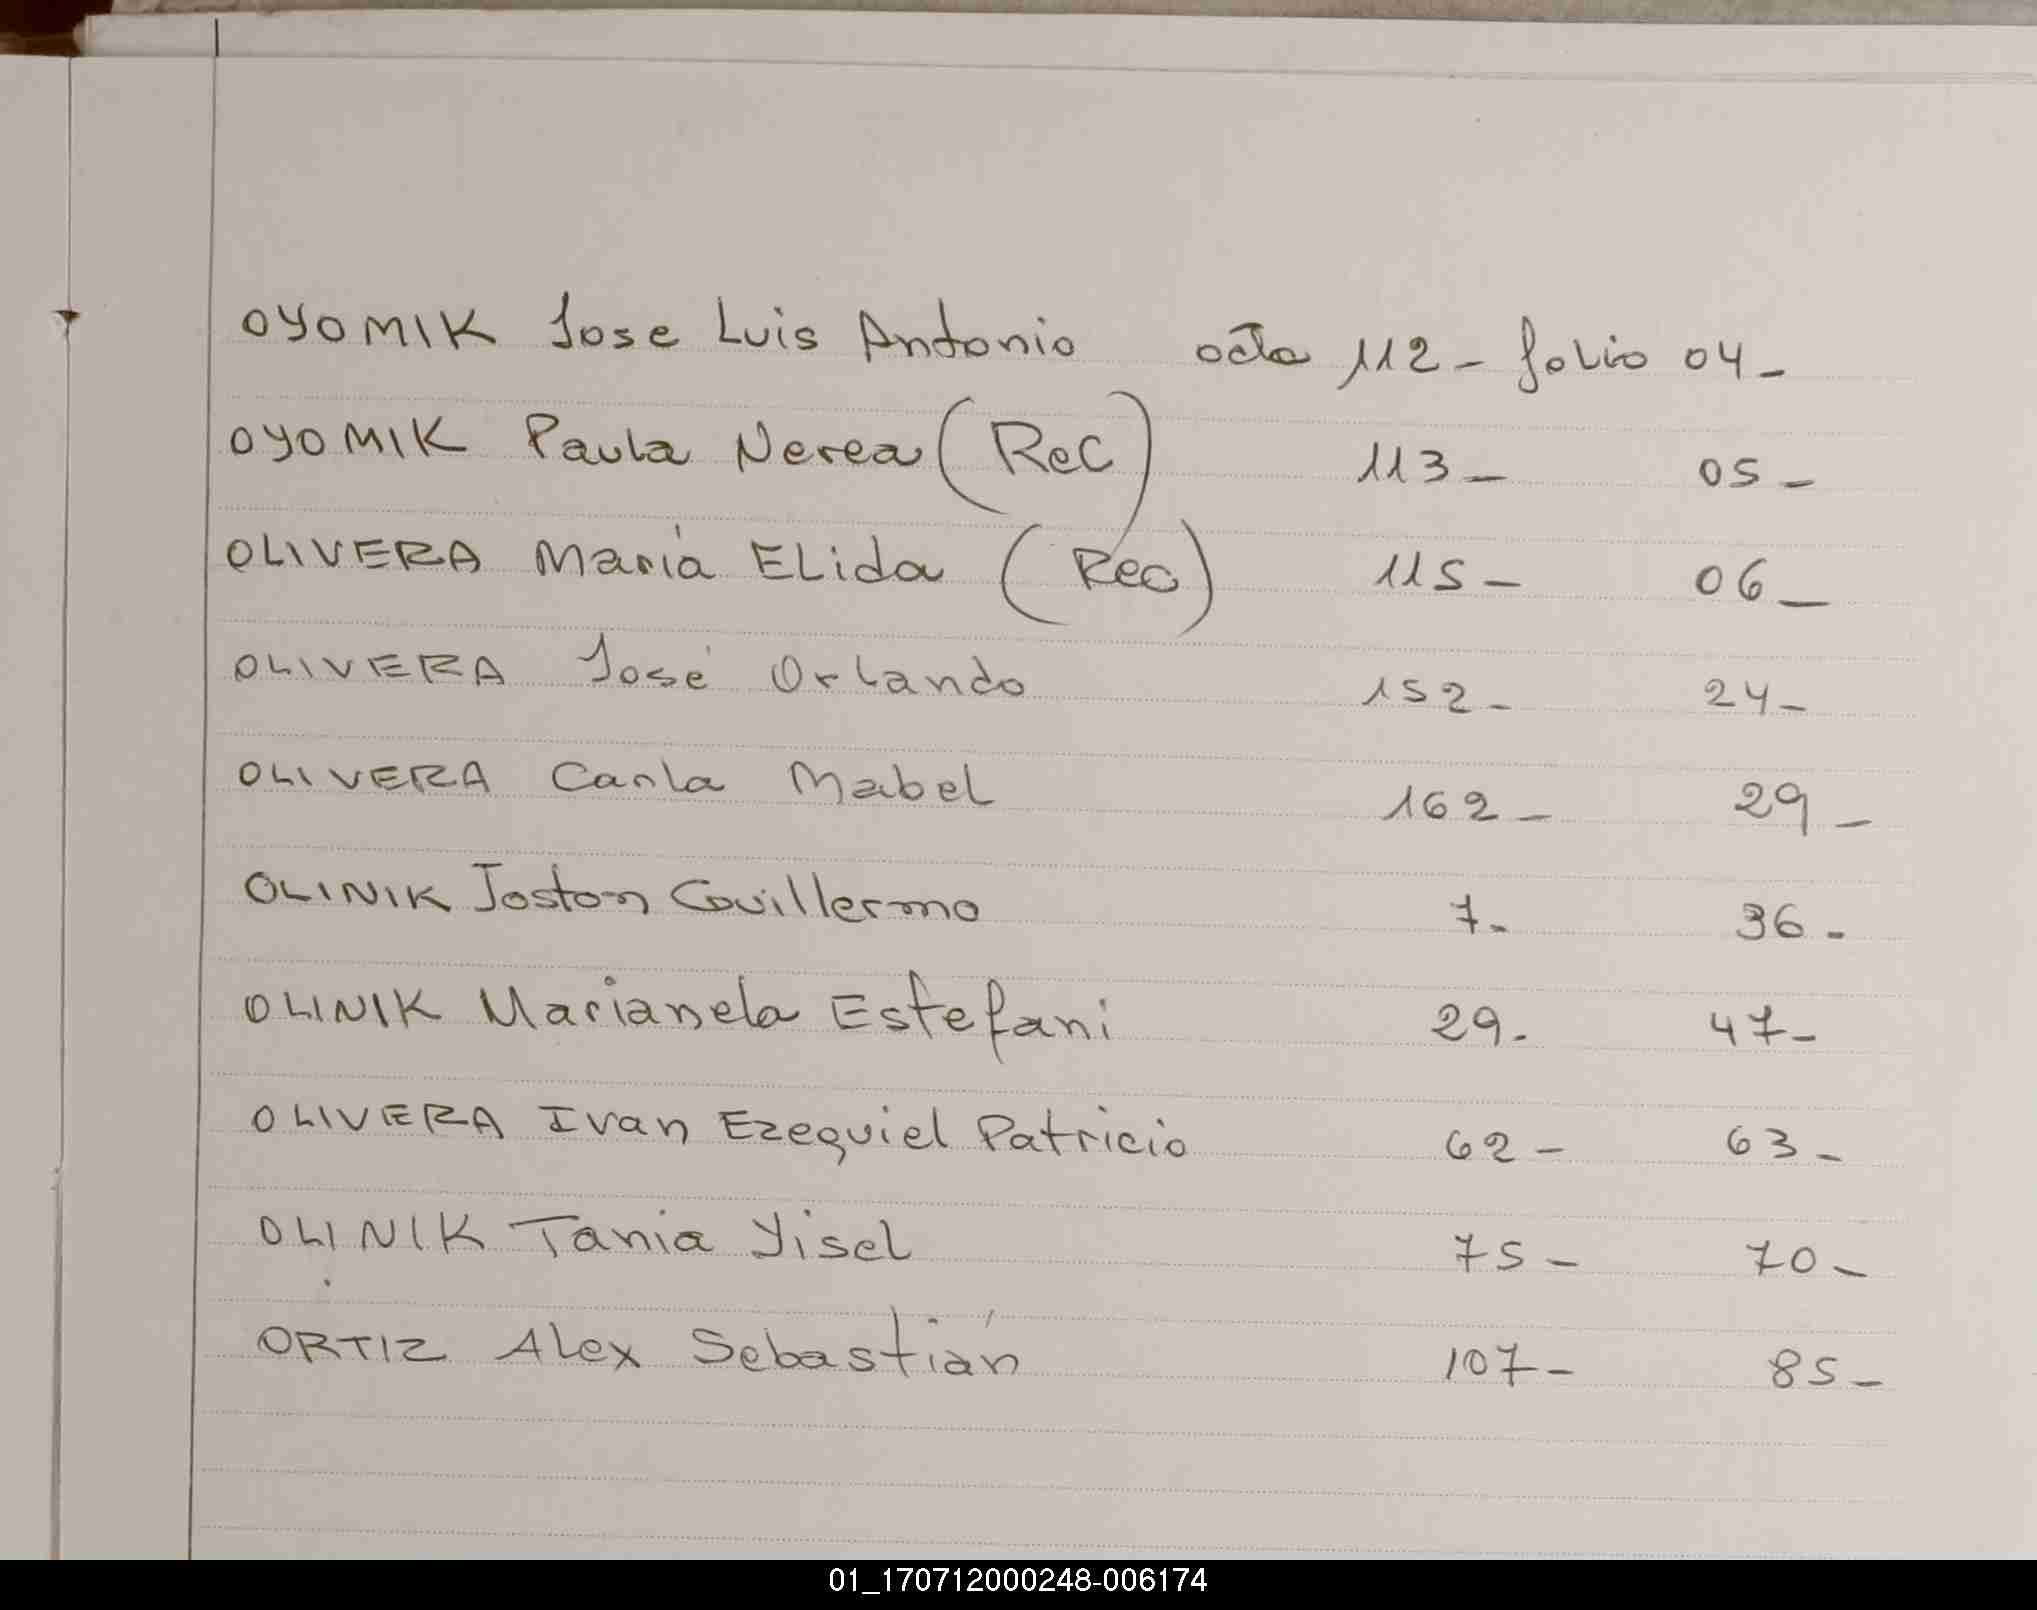 OYOMIK Jose Luis Antonio acta 112 - folio 04 -
OYOMIK Paula Nerea (Rec) 113 - 05 -
OLIVERA María Elida (Rec) 115 - 06 -
OLIVERA José Orlando 152 - 24 -
OLIVERA Carla Mabel 162 - 29 -
OLINIK Joston Guillermo 7 - 36 -
OLINIK Marianela Estefani 29 - 47 -
OLIVERA Ivan Ezequiel Patricio 62 - 63 -
OLINIK Tania Yisel 75 - 70 -
ORTIZ Alex Sebastián 107 - 85 -
01_170712000248-006174